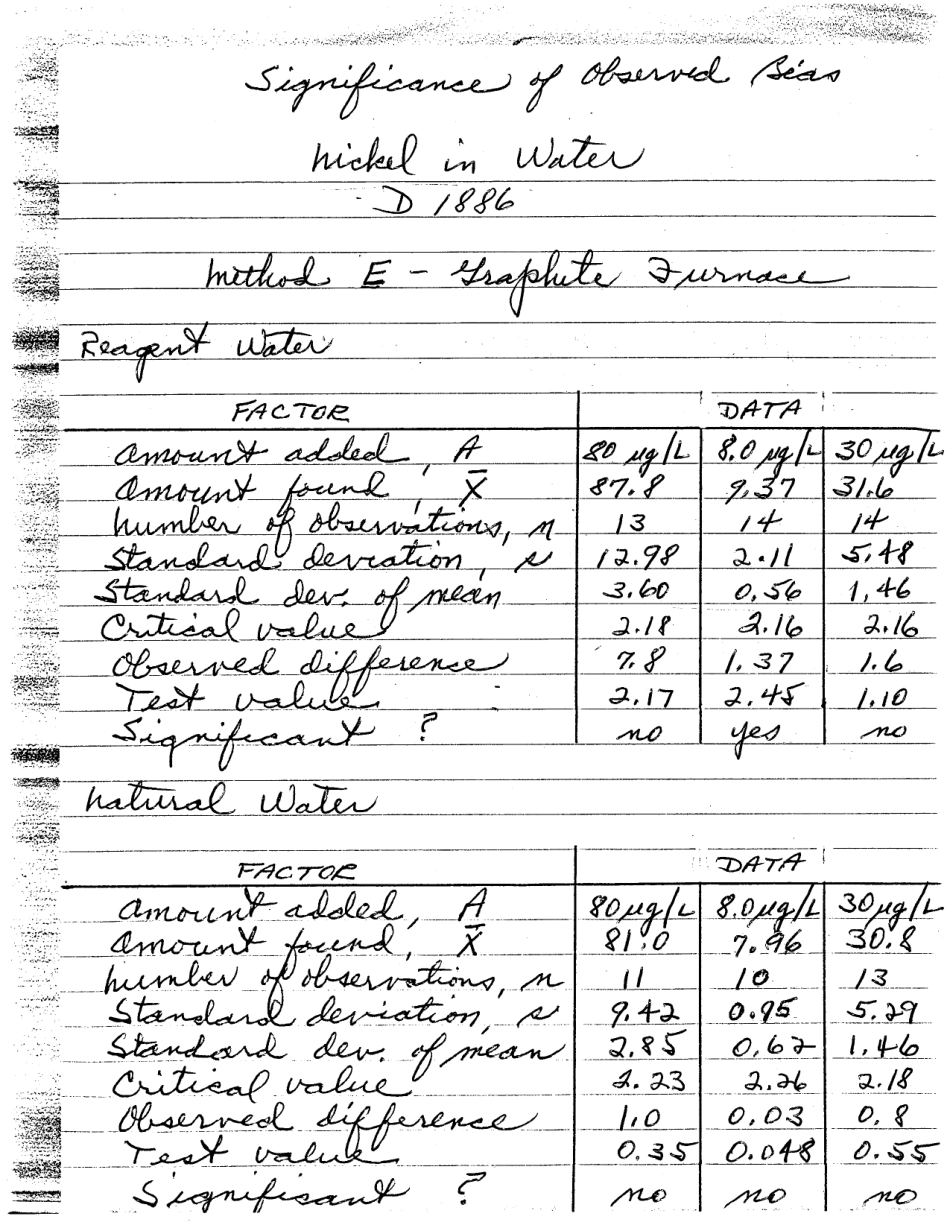 Significance of Observed Bias
Nickel in Water
D 1886
Method E - Graphite Furnace
Reagent Water
FACTOR DATA
Amount added, A 80 µg/L 8.0 µg/L 30 µg/L
Amount found, X̄ 87.8 9.37 31.6
Number of observations, n 13 14 14
Standard deviation, s 12.98 2.11 5.48
Standard dev. of mean 3.60 0.56 1.46
Critical value 2.18 2.16 2.16
Observed difference 7.8 1.37 1.6
Test value 2.17 2.45 1.10
Significant ? no yes no
Natural Water
FACTOR DATA
Amount added, A 80 µg/L 8.0 µg/L 30 µg/L
Amount found, X̄ 81.0 7.96 30.8
Number of observations, n 11 10 13
Standard deviation, s 9.42 0.95 5.29
Standard dev. of mean 2.85 0.62 1.46
Critical value 2.23 2.26 2.18
Observed difference 1.0 0.03 0.8
Test value 0.35 0.048 0.55
Significant ? no no no